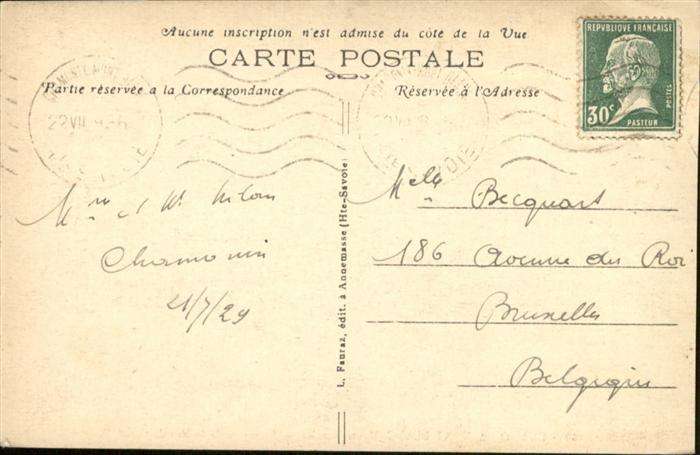 Aucune inscription n'est admise du côté de la Vue
CARTE POSTALE
Partie réservée a la Correspondance
Réservée à l'Adresse
REPVBLIQUE FRANÇAISE
POSTES
30c
PASTEUR
22 VII
Chamonix
21/7/29
L. Fauraz, édit. à Annemasse (Hte-Savoie)
Melle Becquart
186 Avenue du Roi
Bruxelles
Belgique